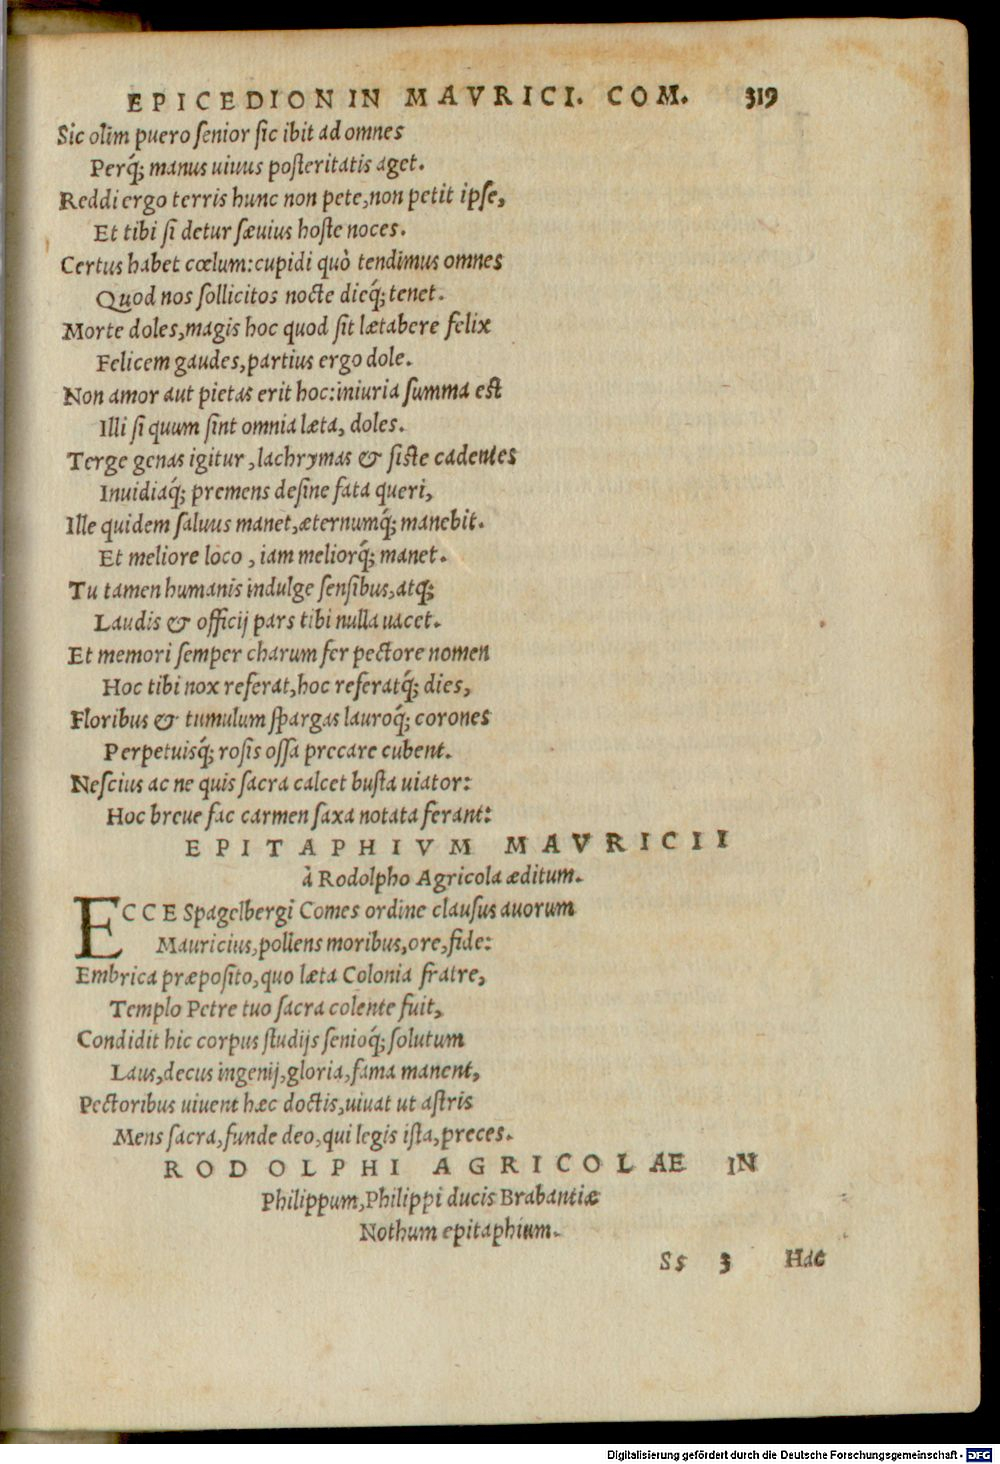 EPICEDION IN MAVRICI. COM. 319
Sic olim puero senior sic ibit ad omnes
Perq́; manus uiuus posteritatis aget.
Reddi ergo terris hunc non pete, non petit ipse,
Et tibi si detur sæuius hoste noces.
Certus habet cœlum: cupidi quò tendimus omnes
Quod nos sollicitos nocte dieq́; tenet.
Morte doles, magis hoc quod sit lætabere felix
Felicem gaudes, partius ergo dole.
Non amor aut pietas erit hoc: iniuria summa est
Illi si quum sint omnia læta, doles.
Terge genas igitur, lachrymas & siste cadentes
Inuidiaq́; premens desine fata queri,
Ille quidem saluus manet, æternumq́; manebit.
Et meliore loco, iam meliorq́; manet.
Tu tamen humanis indulge sensibus, atq;
Laudis & officij pars tibi nulla uacet.
Et memori semper charum fer pectore nomen
Hoc tibi nox referat, hoc referatq́; dies,
Floribus & tumulum spargas lauroq́; corones
Perpetuisq́; rosis ossa precare cubent.
Nescius ac ne quis sacra calcet busta uiator:
Hoc breue fac carmen saxa notata ferant:
EPITAPHIVM MAVRICII
à Rodolpho Agricola æditum.
ECCE Spagelbergi Comes ordine clausus auorum
Mauricius, pollens moribus, ore, fide:
Embrica præposito, quo læta Colonia fratre,
Templo Petre tuo sacra colente fuit,
Condidit hic corpus studijs senioq́; solutum
Laus, decus ingenij, gloria, fama manent,
Pectoribus uiuent hæc doctis, uiuat ut astris
Mens sacra, funde deo, qui legis ista, preces.
RODOLPHI AGRICOLAE IN
Philippum, Philippi ducis Brabantiæ
Nothum epitaphium.
Ss 3 Hac
Digitalisierung gefördert durch die Deutsche Forschungsgemeinschaft - DFG